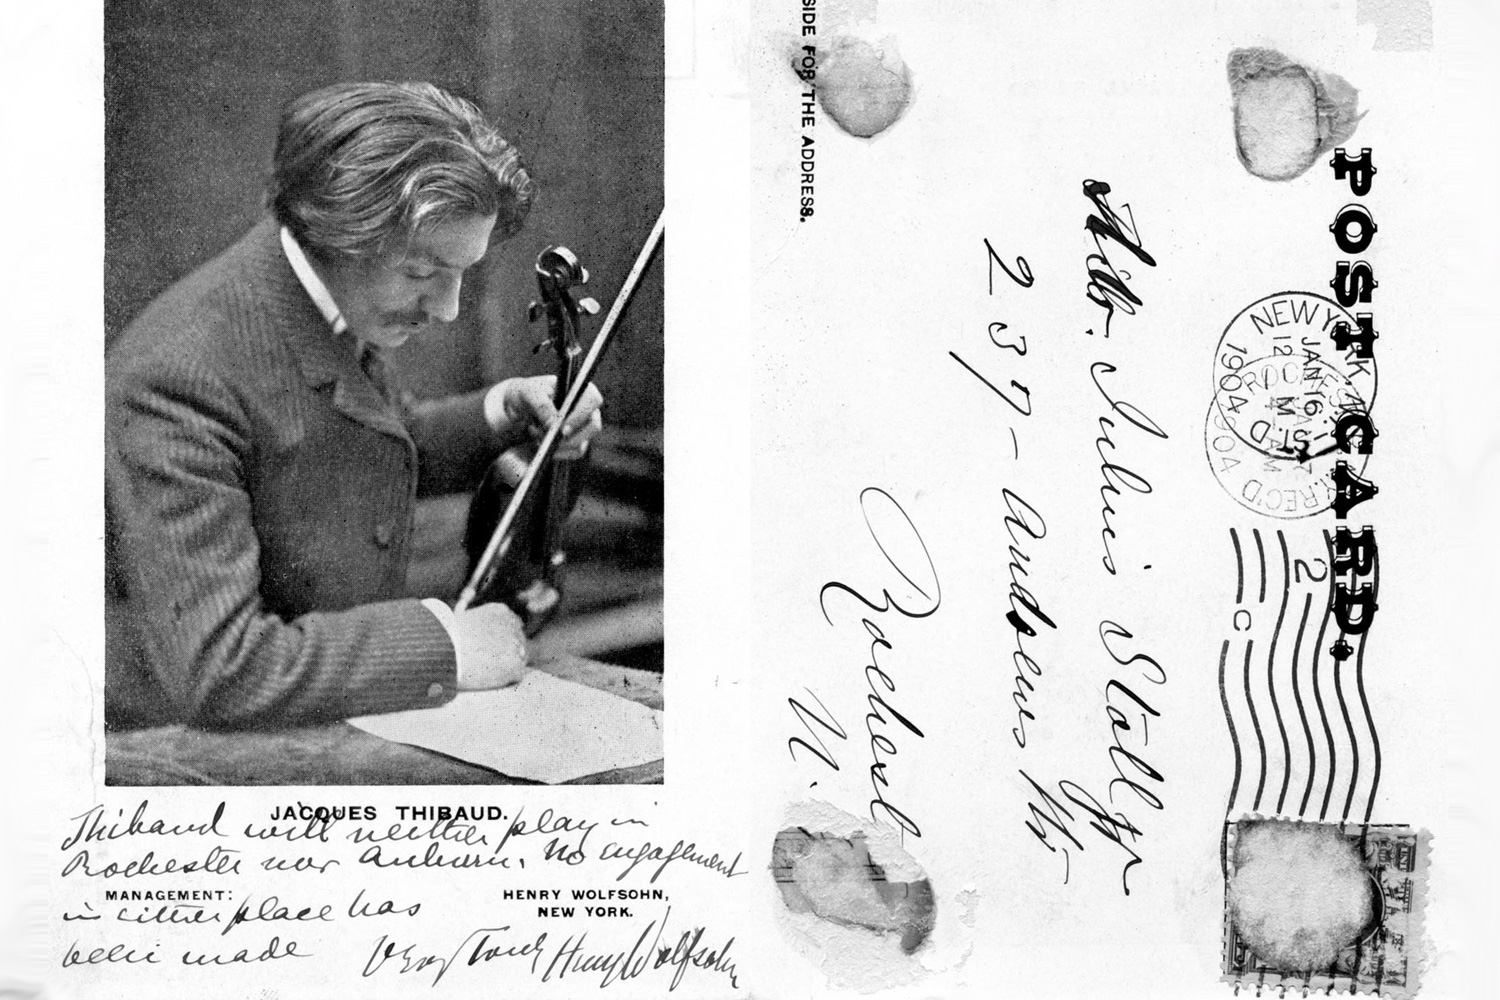 JACQUES THIBAUD.
Thibaud will neither play in
Rochester nor Auburn. No engagement
MANAGEMENT:
HENRY WOLFSOHN,
NEW YORK.
in either place has
been made
Very Truly Henry Wolfsohn
SIDE FOR THE ADDRESS.
POST CARD.
NEW YORK, N.Y.
JAN 16
1904
REC'D
1904
2
C
Julius Stoll Jr
237 - Andrews St.
Rochest
N.